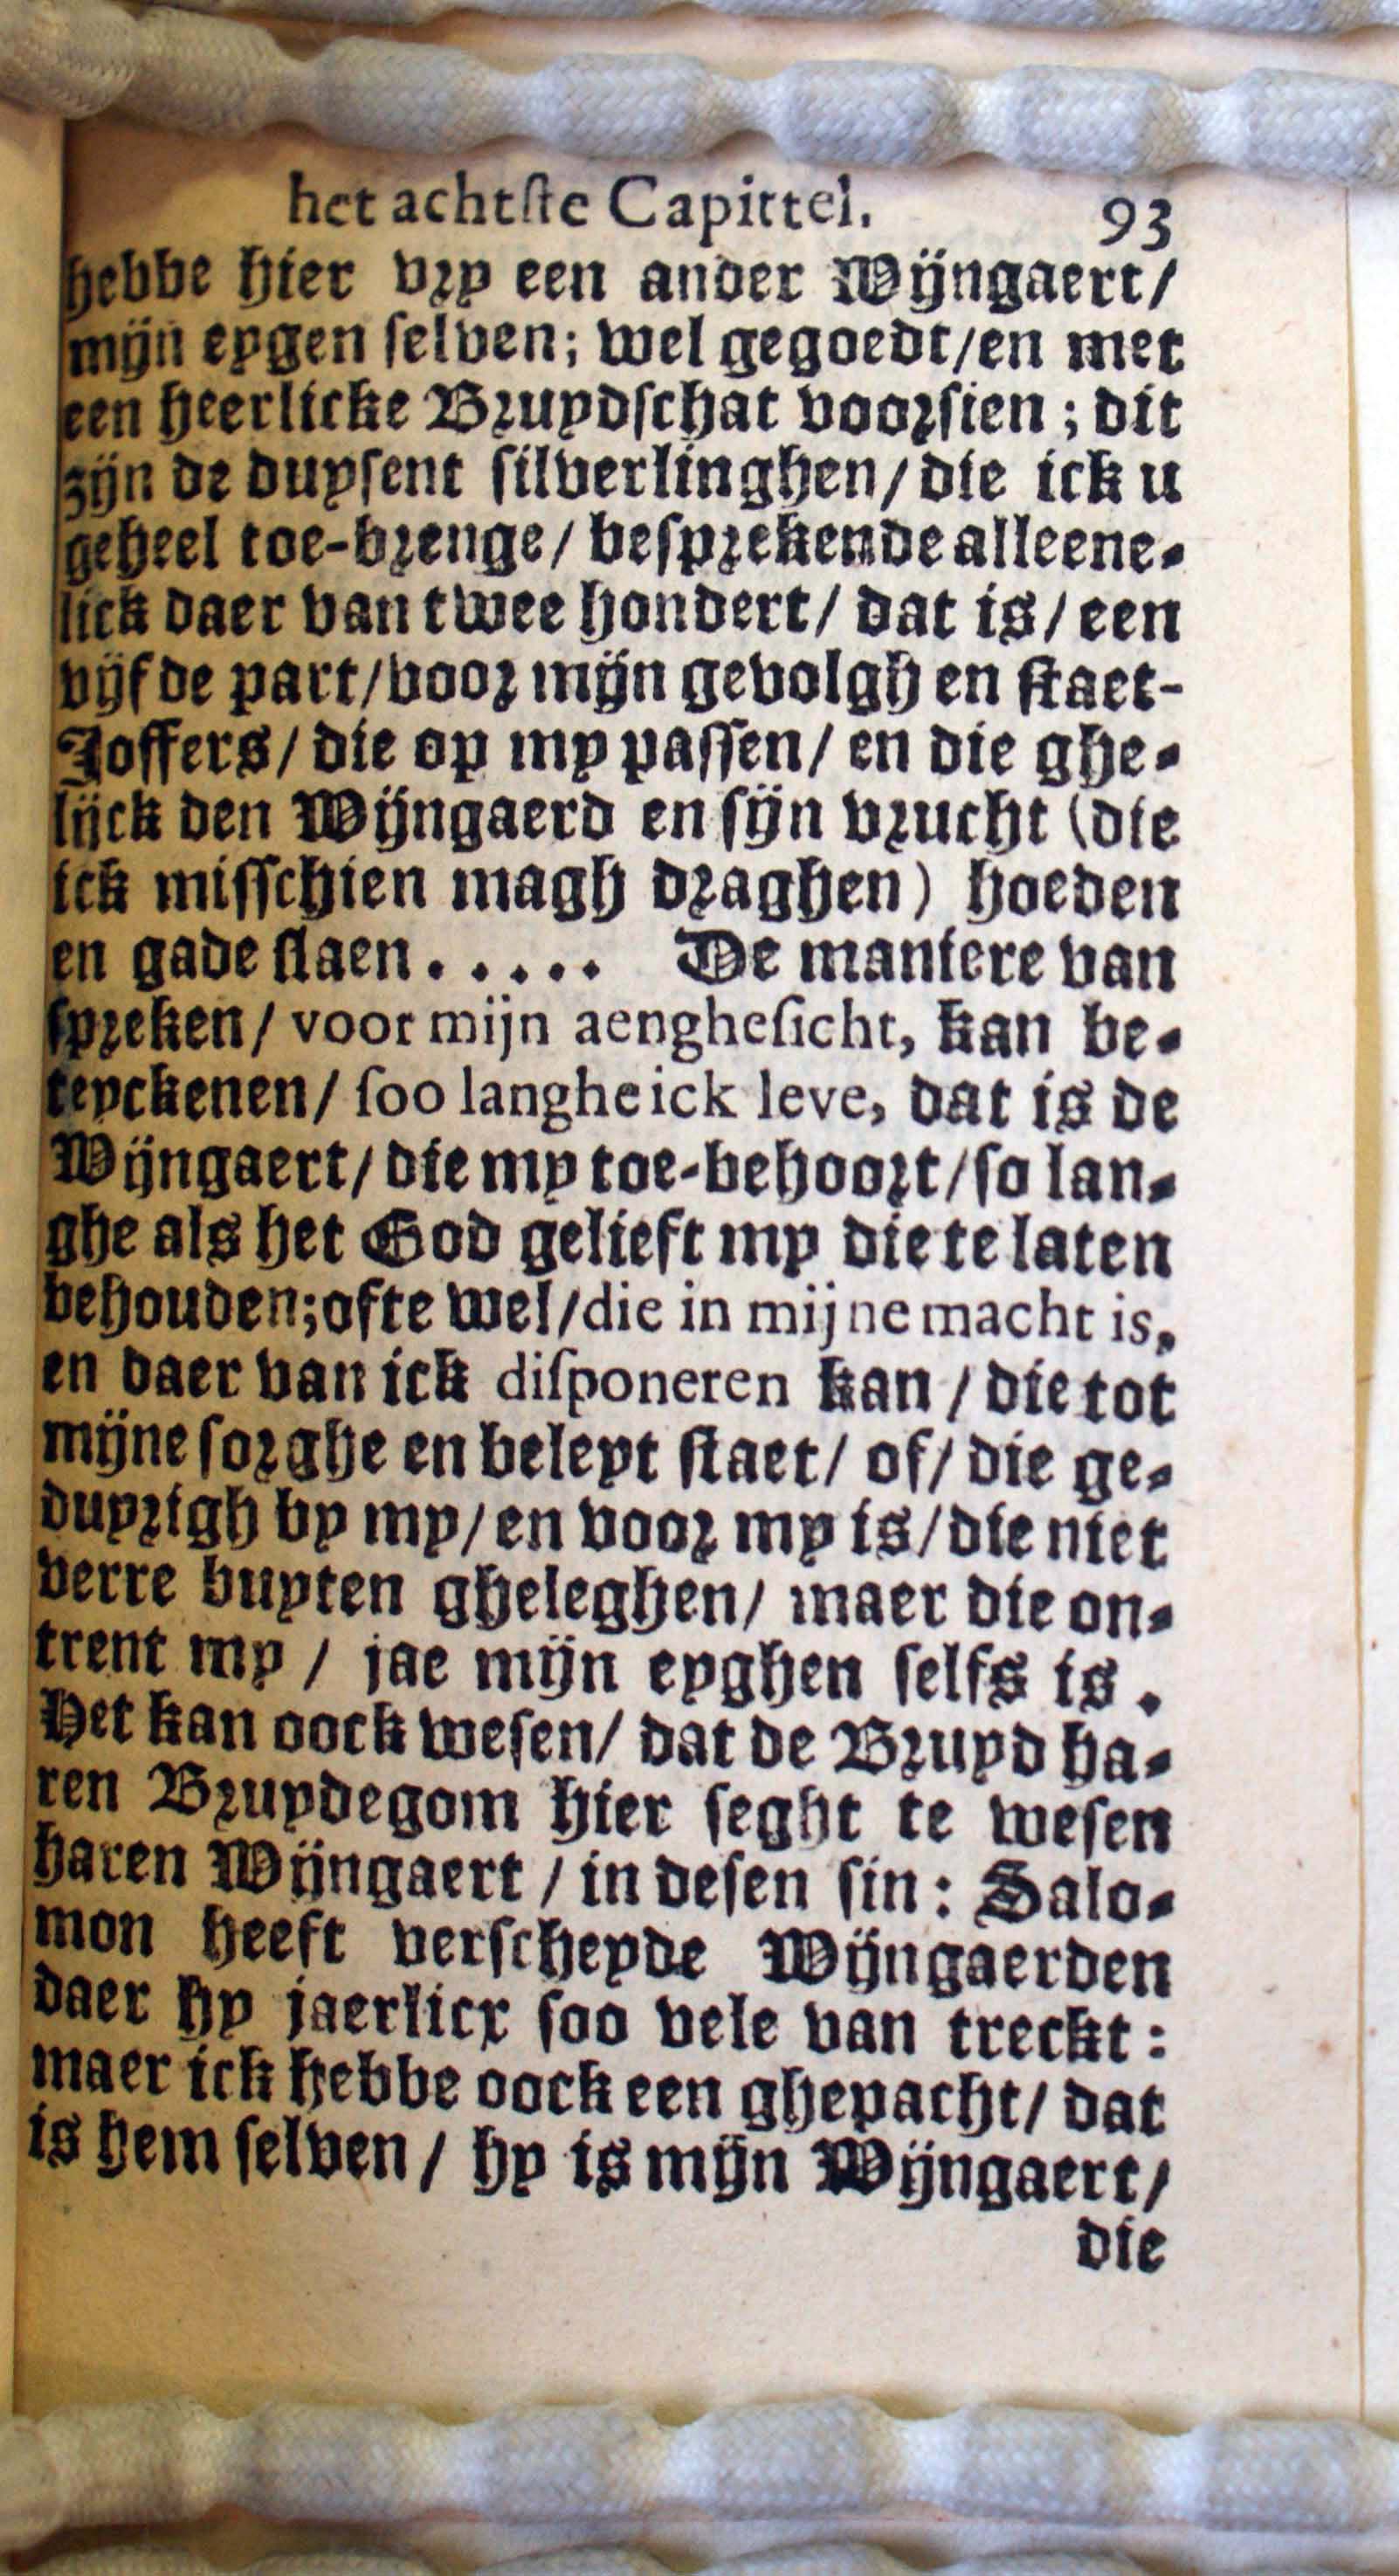 het achtſte Capittel. 93
hebbe hier vry een ander Wijngaert/
mijn eygen ſelven; wel gegoedt/en met
een heerlicke Bruydſchat voorſien; dit
zijn de duyſent ſilverlinghen/die ick u
geheel toe-brenge/beſprekende alleene-
lick daer van twee hondert/dat is/een
vijfde part/voor mijn gevolgh en ſtaet-
Joffers/die op my paſſen/en die ghe-
lijck den Wijngaerd en ſijn vrucht (die
ick miſſchien magh draghen) hoeden
en gade ſlaen..... De maniere van
ſpreken/voor mijn aengheſicht, kan be-
teyckenen/ſoo langhe ick leve, dat is de
Wijngaert/die my toe-behoort/ſo lan-
ghe als het God gelieft my die te laten
behouden;ofte wel/die in mijne macht is,
en daer van ick diſponeren kan/die tot
mijne ſorghe en beleyt ſtaet/of/die ge-
duyrigh by my/en voor my is/die niet
verre buyten gheleghen/maer die on-
trent my/jae mijn eyghen ſelfs is.
Het kan oock weſen/dat de Bruyd ha-
ren Bruydegom hier ſeght te weſen
haren Wijngaert/in deſen ſin: Salo-
mon heeft verſcheyde Wijngaerden
daer hy jaerlicx ſoo vele van treckt:
maer ick hebbe oock een ghepacht/dat
is hem ſelven/hy is mijn Wijngaert/
die